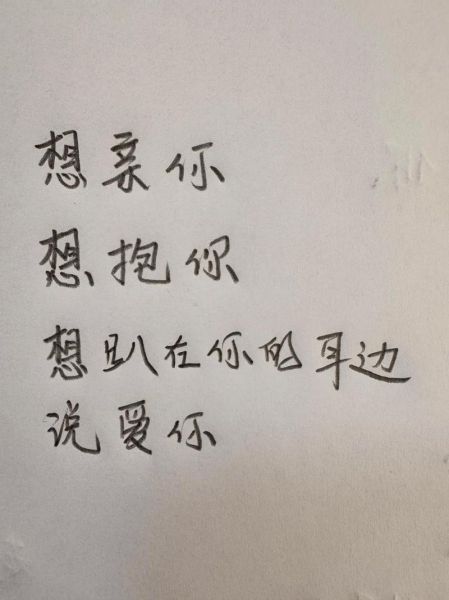 想亲你
想抱你
想趴在你的耳边
说爱你